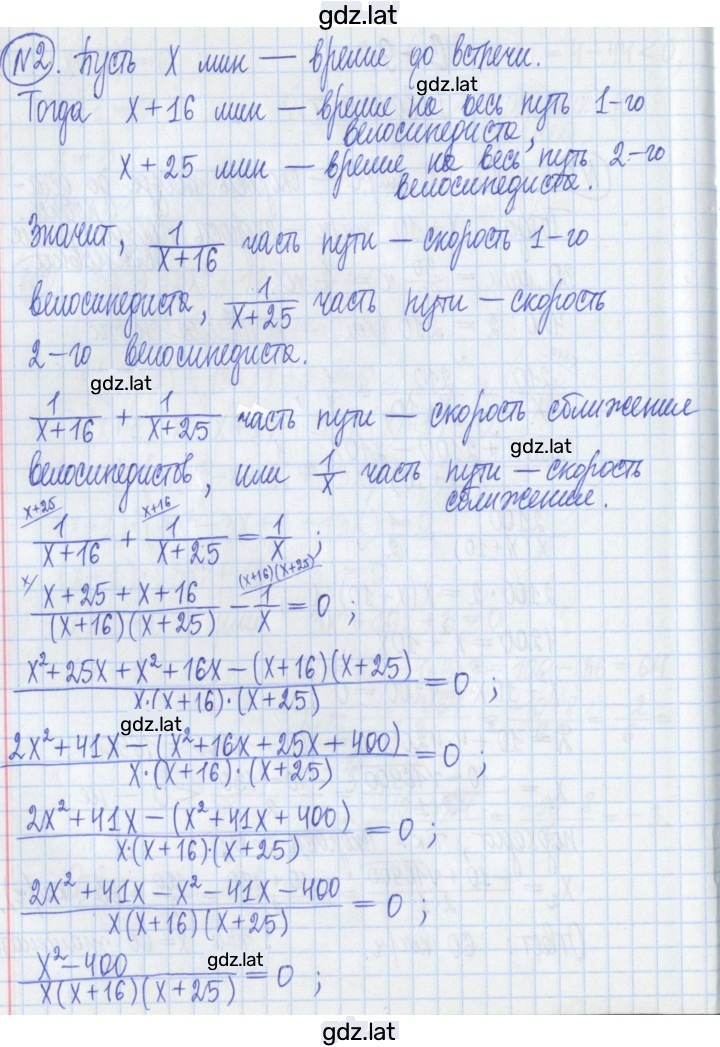 gdz.lat
№2. Пусть x мин — время до встречи.
gdz.lat
Тогда x+16 мин — время на весь путь 1-го
велосипедиста,
x+25 мин — время на весь путь 2-го
велосипедиста.
Значит, 1/(x+16) часть пути — скорость 1-го
велосипедиста, 1/(x+25) часть пути — скорость
2-го велосипедиста.
gdz.lat
1/(x+16) + 1/(x+25) часть пути — скорость сближения
gdz.lat
велосипедистов, или 1/x часть пути — скорость
сближения.
x+25/ 1/(x+16) + x+16/ 1/(x+25) = 1/x ;
x/ (x+25+x+16)/((x+16)(x+25)) - (x+16)(x+25)/ 1/x = 0 ;
(x²+25x+x²+16x-(x+16)(x+25))/(x·(x+16)·(x+25)) = 0 ;
gdz.lat
(2x²+41x-(x²+16x+25x+400))/(x·(x+16)·(x+25)) = 0 ;
(2x²+41x-(x²+41x+400))/(x·(x+16)·(x+25)) = 0 ;
(2x²+41x-x²-41x-400)/(x(x+16)(x+25)) = 0 ;
gdz.lat
(x²-400)/(x(x+16)(x+25)) = 0 ;
gdz.lat